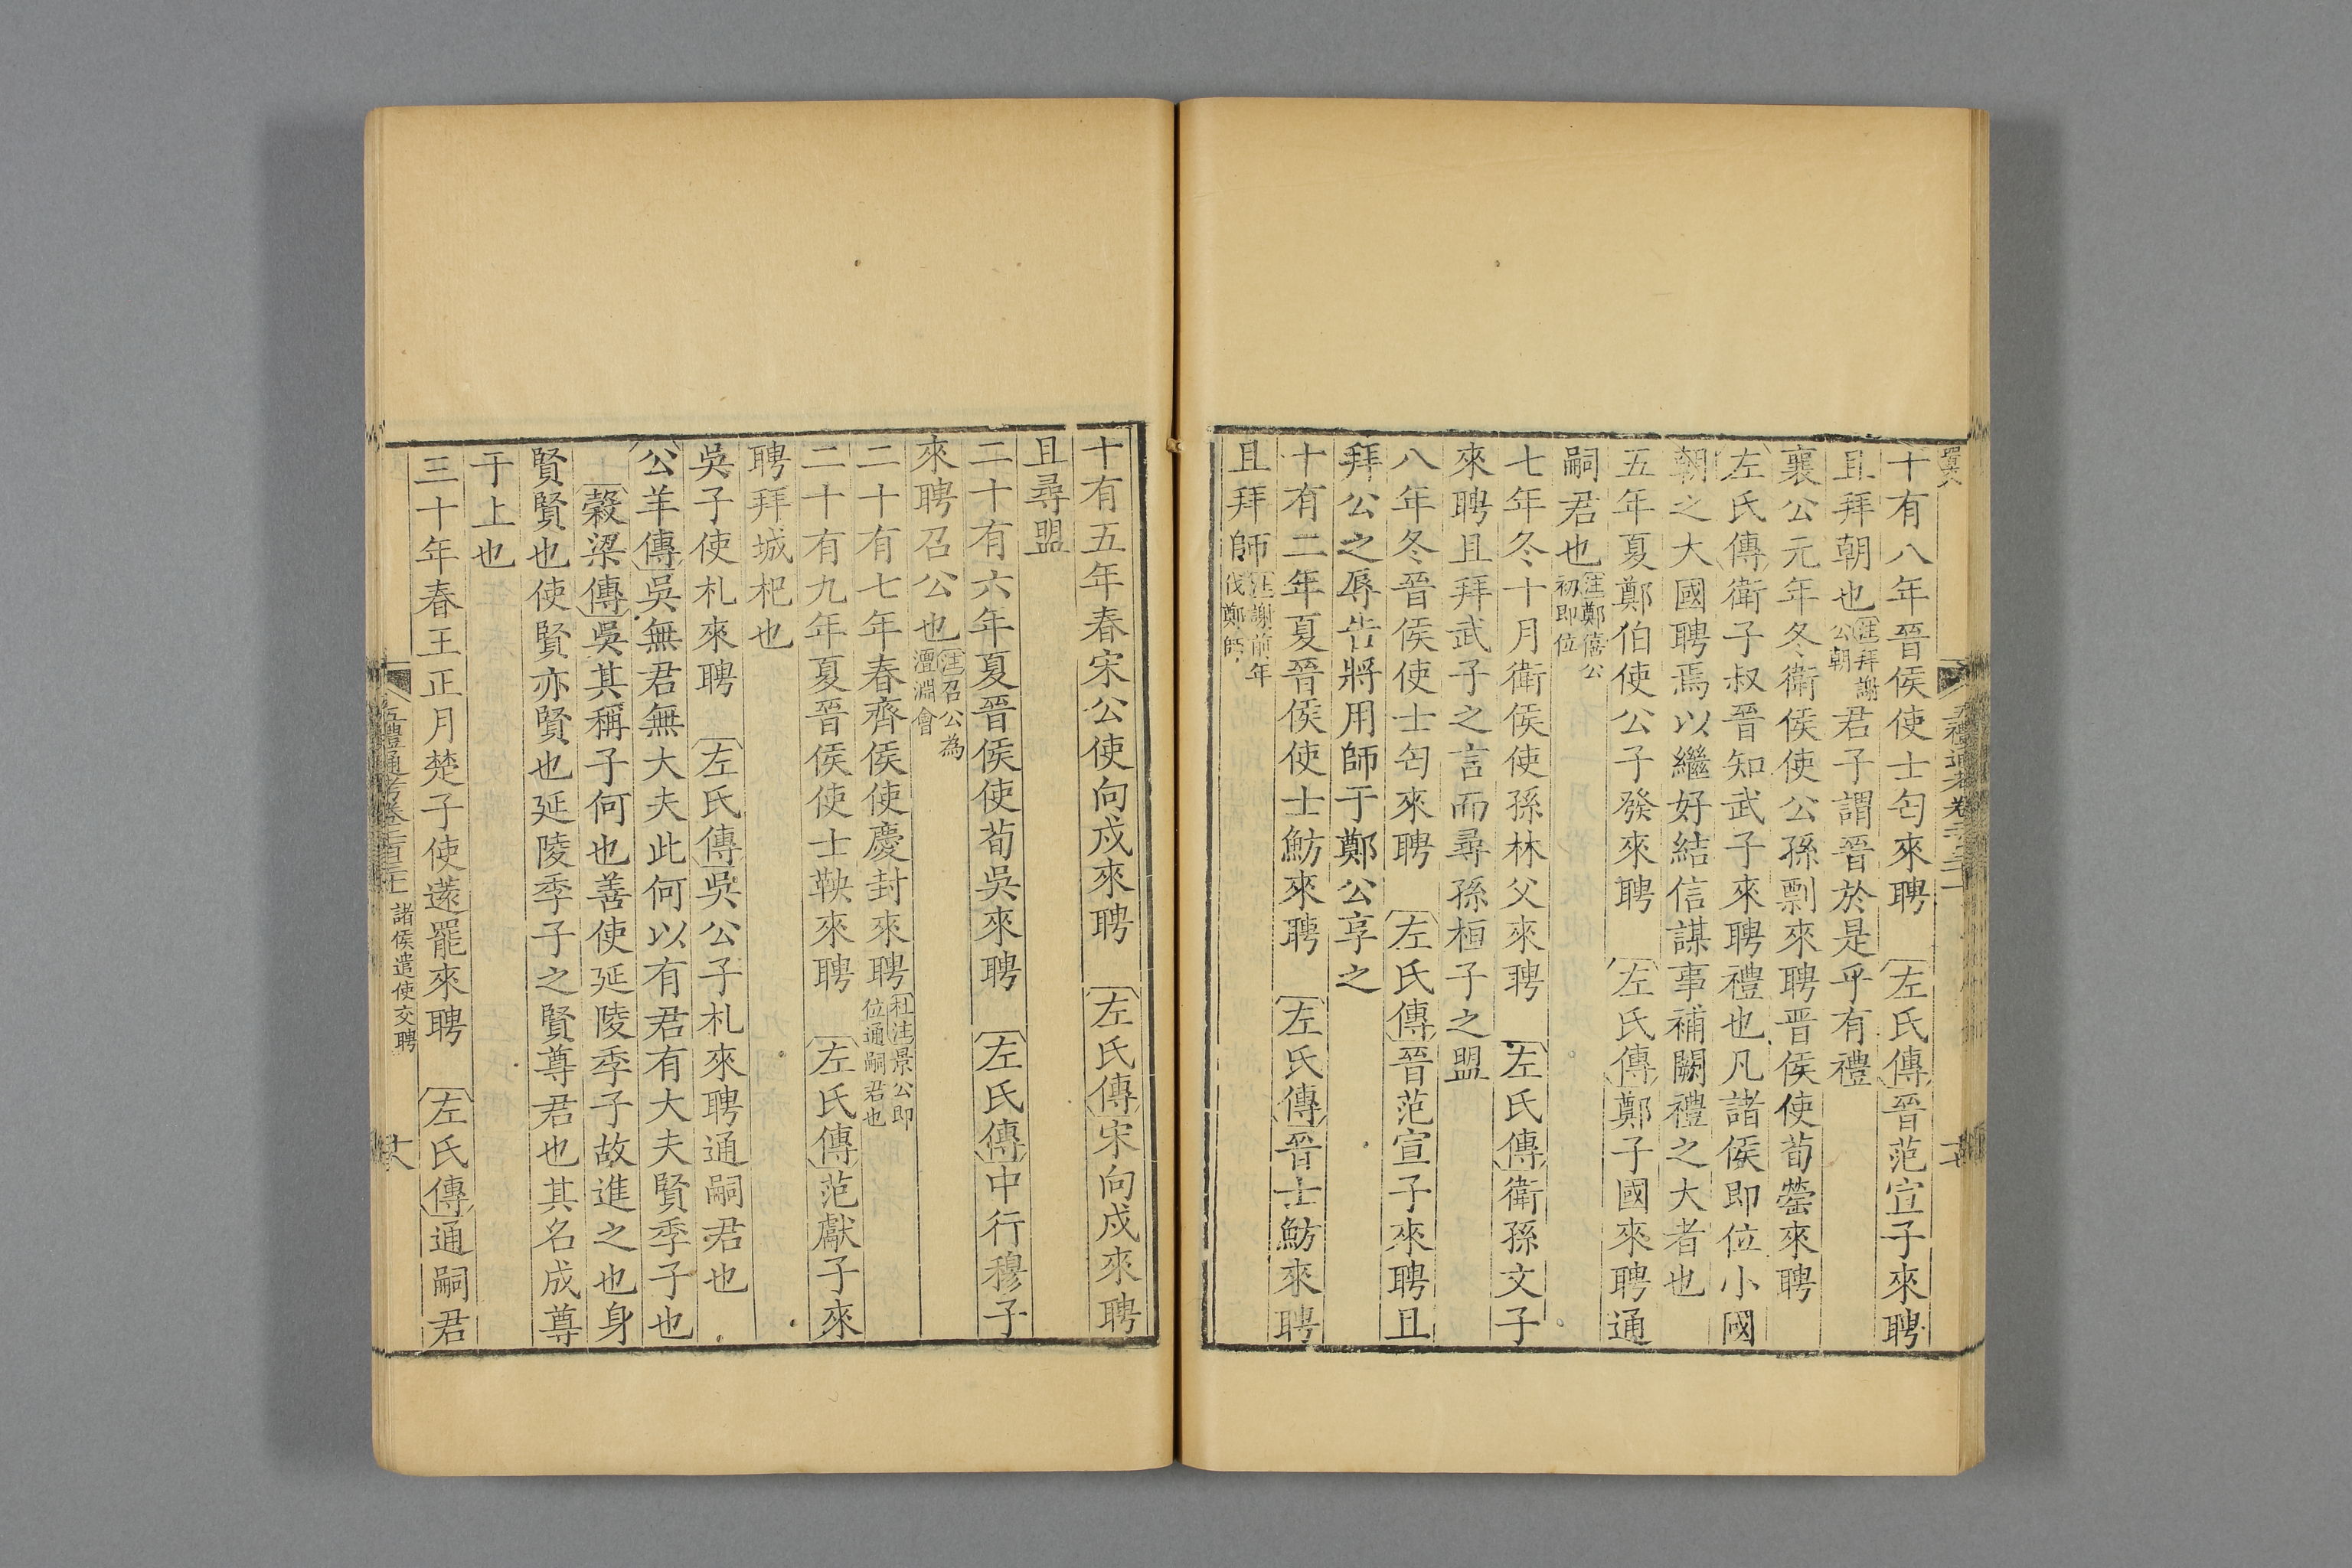 十有八年晉侯使士匄來聘 左氏傳晉范宣子來聘
且拜朝也注拜謝公朝君子謂晉於是乎有禮
襄公元年冬衛侯使公孫剽來聘晉侯使荀罃來聘
左氏傳衛子叔晉知武子來聘禮也凡諸侯即位小國
朝之大國聘焉以繼好結信謀事補闕禮之大者也
五年夏鄭伯使公子發來聘 左氏傳鄭子國來聘通
嗣君也注鄭僖公初即位
七年冬十月衛侯使孫林父來聘 左氏傳衛孫文子
來聘且拜武子之言而尋孫桓子之盟
八年冬晉侯使士匄來聘 左氏傳晉范宣子來聘且
拜公之辱告將用師于鄭公享之
十有二年夏晉侯使士魴來聘 左氏傳晉士魴來聘
且拜師注謝前年伐鄭師
十有五年春宋公使向戌來聘 左氏傳宋向戌來聘
且尋盟
二十有六年夏晉侯使荀吳來聘 左氏傳中行穆子
來聘召公也注召公為澶淵會
二十有七年春齊侯使慶封來聘杜注景公即位通嗣君也
二十有九年夏晉侯使士鞅來聘 左氏傳范獻子來
聘拜城杞也
吳子使札來聘 左氏傳吳公子札來聘通嗣君也
公羊傳吳無君無大夫此何以有君有大夫賢季子也
穀梁傳吳其稱子何也善使延陵季子故進之也身
賢賢也使賢亦賢也延陵季子之賢尊君也其名成尊
于上也
三十年春王正月楚子使薳罷來聘 左氏傳通嗣君
五禮通考卷二百三十二 諸侯遣使交聘
十八